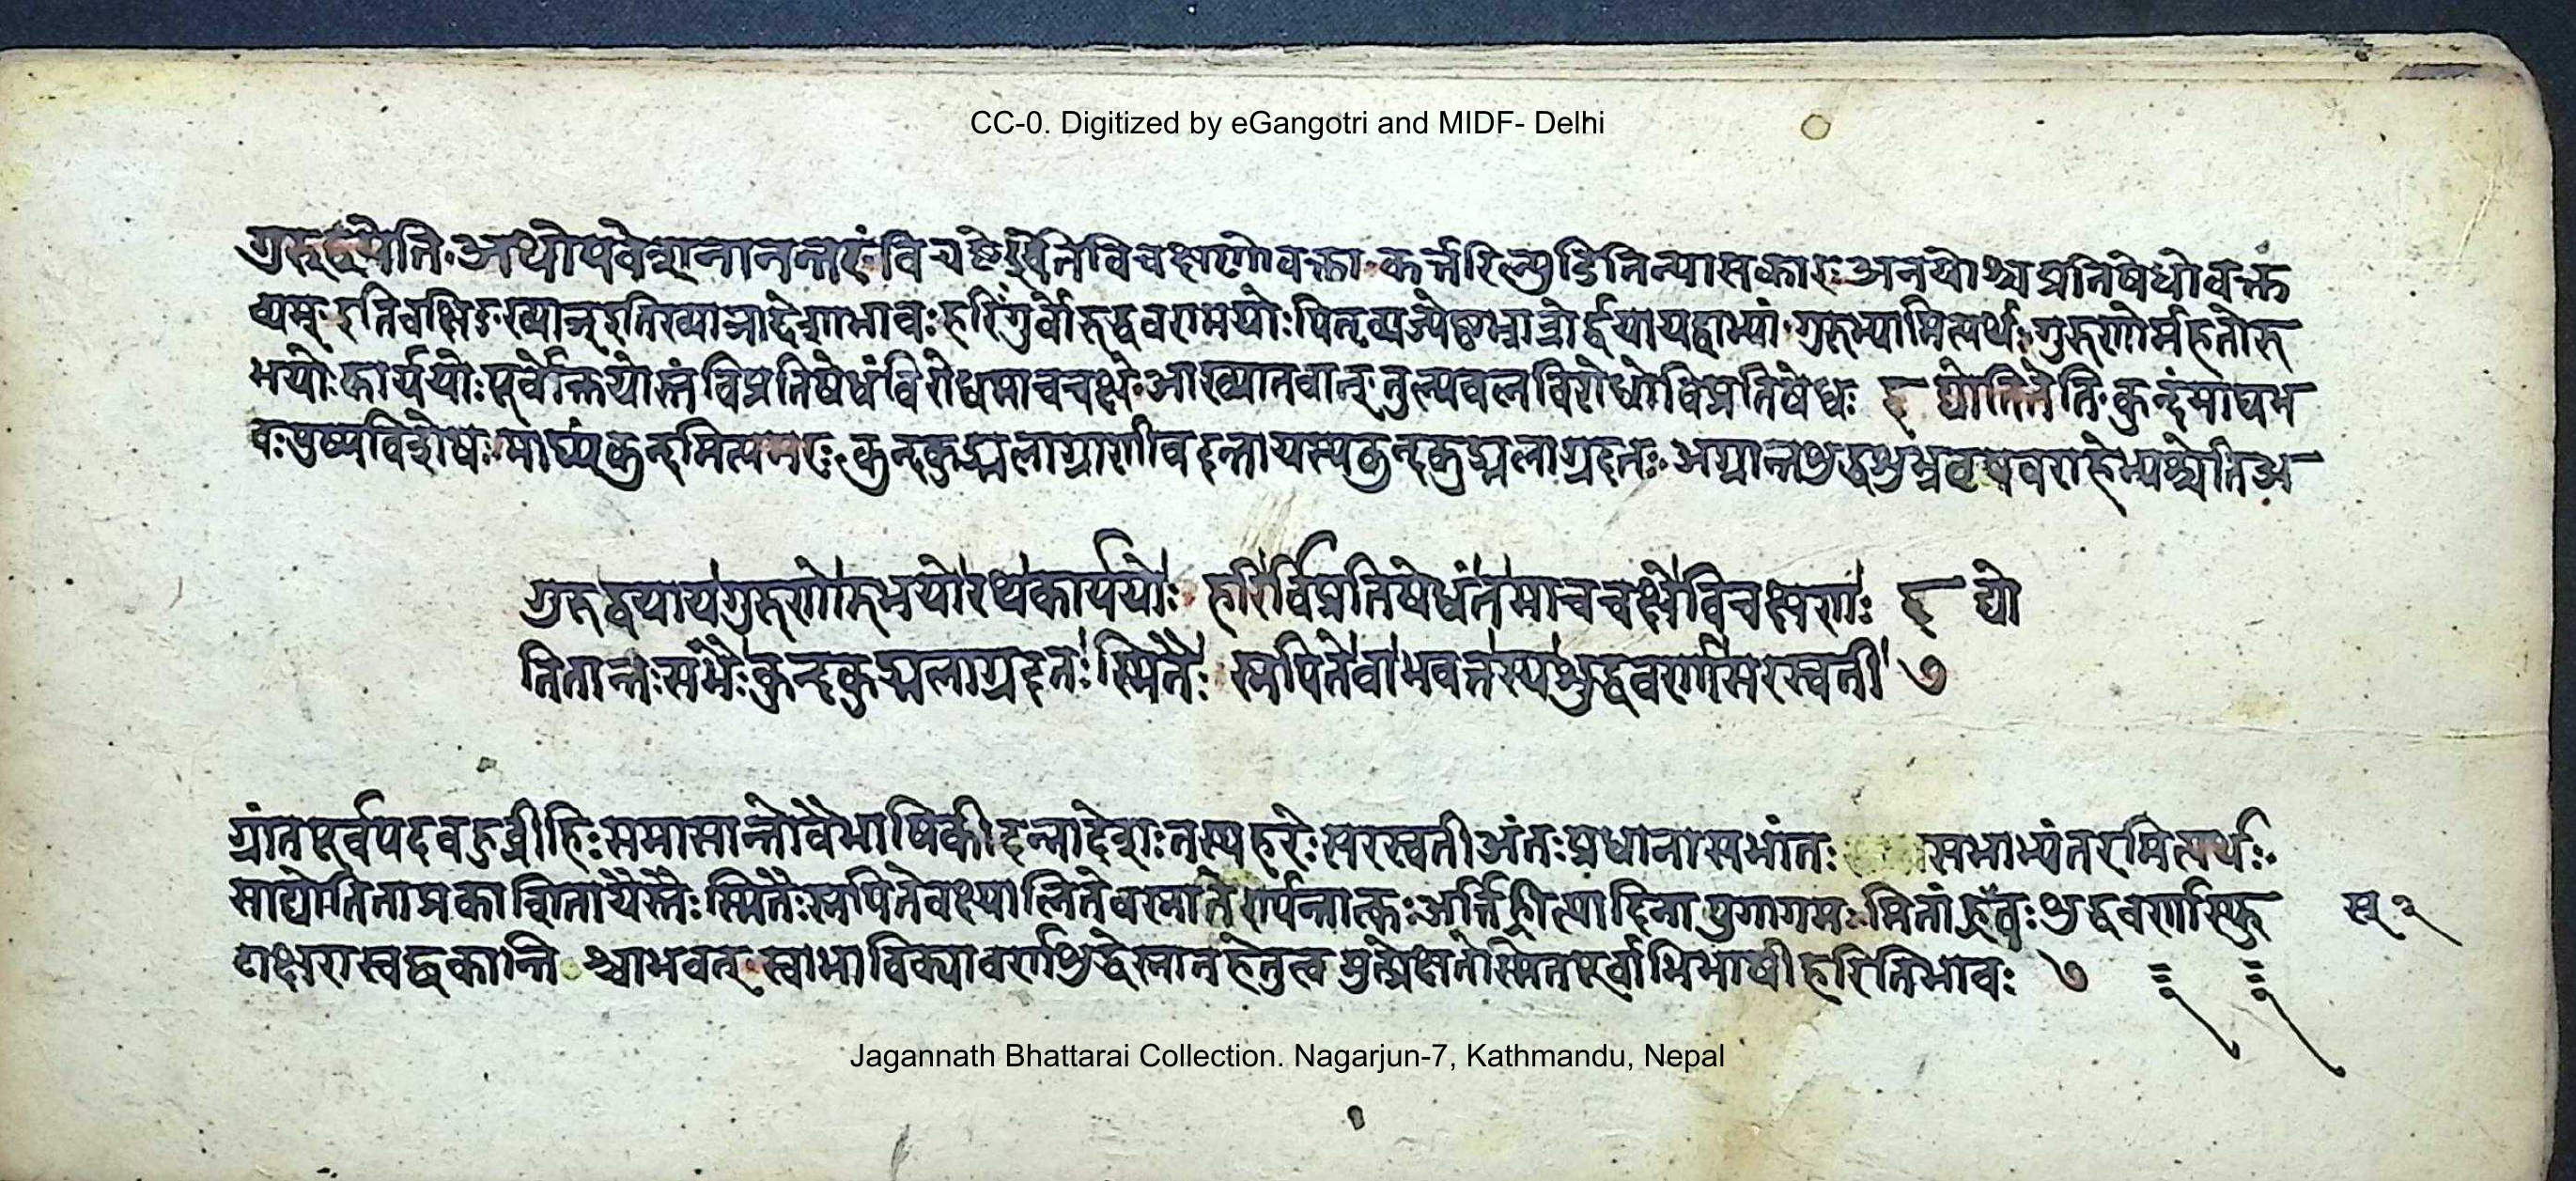 CC-0. Digitized by eGangotri and MIDF- Delhi
गुरुद्वयेति अथोपवेशनानन्तरं विचष्टे इति विचक्षणो वक्ता कर्त्तरिल्युडिति न्यासकारः अनयोश्च प्रतिषेधो वक्त
व्यम् इति चक्षिङः ख्याञ् इति ख्याञादेशाभावः हरिः गुर्वोरुद्धवरामयोः पितृव्यज्येष्ठभ्रात्रोर्द्वयाय द्वाभ्यां गुरुभ्यामित्यर्थः गुरुणोर्महतोरु
भयोः कार्ययोः पूर्वोक्तयोस्तं विप्रतिषेधं विरोधमाचचक्षे आख्यातवान् तुल्यबलविरोधो विप्रतिषेधः ६ द्योतितेति कुन्दं माघभ
वः पुष्पविशेषः माघ्यं कुन्दमित्यमरः कुन्दकुड्मलाग्राणीव दन्ता यस्य कुन्दकुड्मलाग्रदतः अग्रान्तशुद्धशुभ्रवृषवराहेभ्यश्चेति अ
गुरुद्वयाय गुरुणोरुभयोरथ कार्ययोः हरिर्विप्रतिषेधं तमाचचक्षे विचक्षणः ६ द्यो
तितान्तःसभैः कुन्दकुड्मलाग्रदतः स्मितैः स्नपितेवाभवत्तस्य शुद्धवर्णा सरस्वती ७
ग्रांतपूर्वपदबहुव्रीहिः समासान्तो वैभाषिकी दन्तादेशः तस्य हरेः सरस्वती अंतःप्रधाना सभांतः सभाभ्यंतरमित्यर्थः
सा द्योतिता प्रकाशिता यैस्तैः स्मितैः स्नपितेव क्ष्यालितेव स्नातेर्ण्यन्तात्क्तः अर्त्तिह्रीत्यादिना पुगागमः मितां ह्रस्वः शुद्धवर्णा स्फु
टाक्षरा स्वच्छकान्तिश्चाभवत् स्वाभाविक्या वर्णशुद्धेः स्नानहेतुत्वमुत्प्रेक्षते स्मितपूर्वाभिभाषी हरिरिति भावः ७
Jagannath Bhattarai Collection. Nagarjun-7, Kathmandu, Nepal